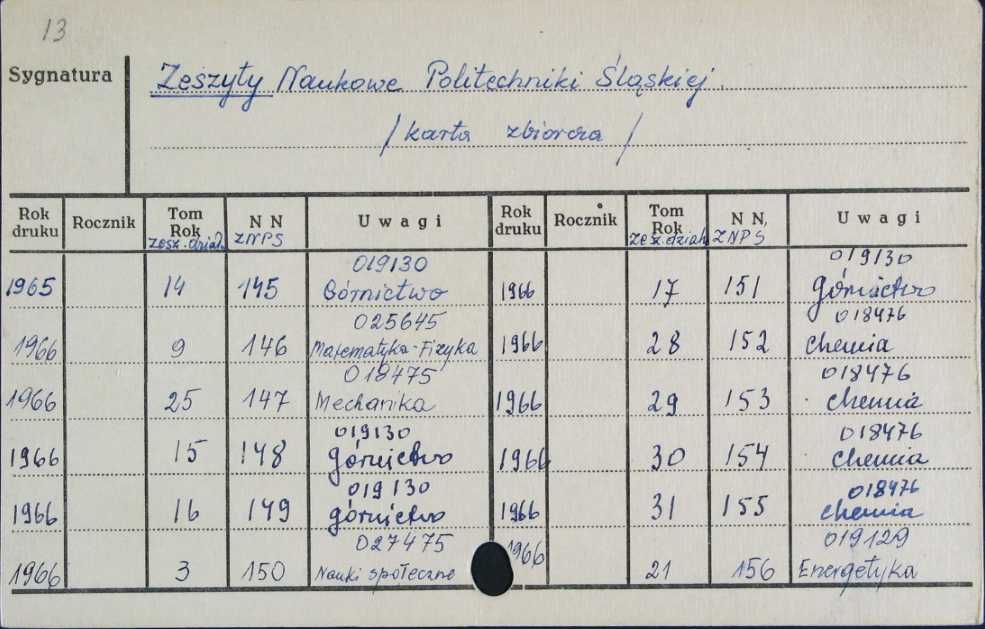 13
Sygnatura
Zeszyty Naukowe Politechniki Śląskiej
/karta zbiorcza/
Rok druku Rocznik Tom Rok zesz. dział N N ZNPS Uwagi Rok druku Rocznik Tom Rok zesz. dział N N. ZNPS Uwagi
019130 019130
1965 14 145 Górnictwo 1966 17 151 górnictwo
025645 018476
1966 9 146 Matematyka-Fizyka 1966 28 152 chemia
018475 018476
1966 25 147 Mechanika 1966 29 153 chemia
019130 018476
1966 15 148 górnictwo 1966 30 154 chemia
019130 018476
1966 16 149 górnictwo 1966 31 155 chemia
027475 019129
1966 3 150 Nauki społeczne 1966 21 156 Energetyka